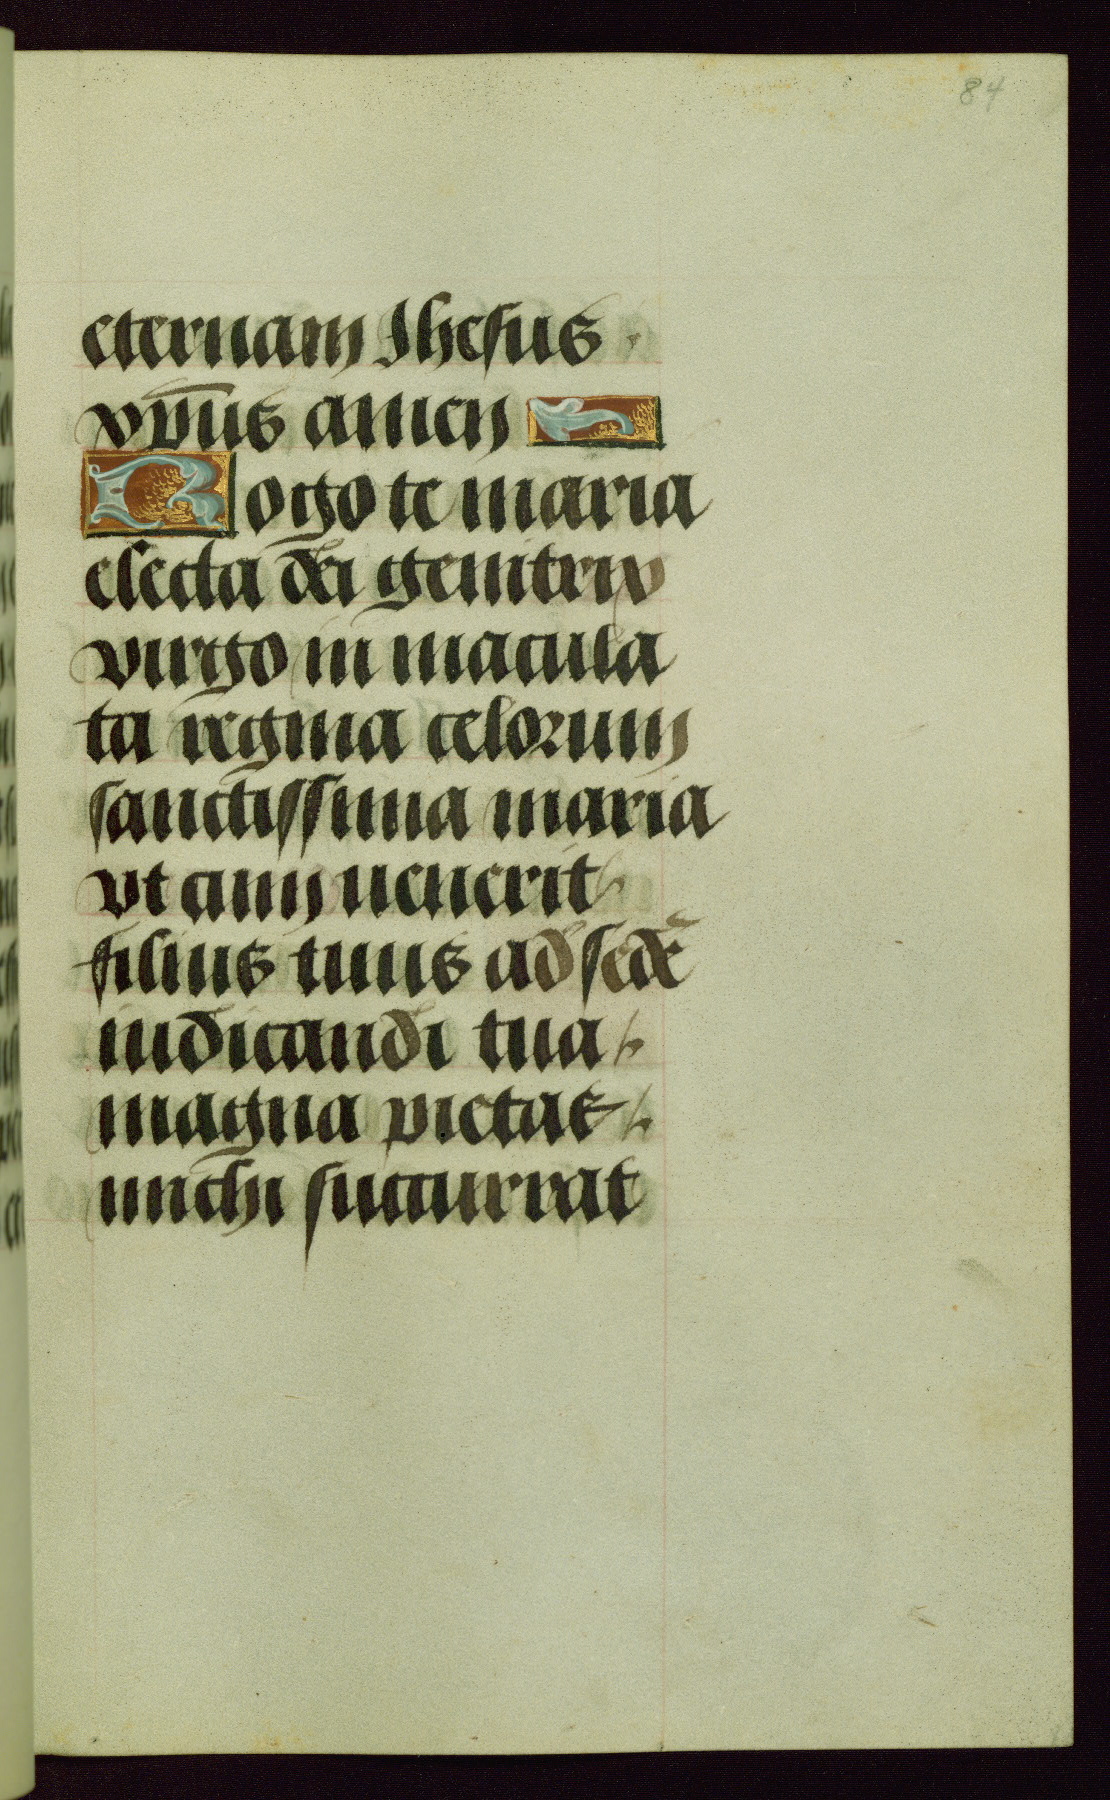 84
eternam Jhesus
xpv̄us amen
Rogo te maria
electa dei genitrix
virgo in macula
ta regina celorum
sanctissima maria
vt cum uenerit
filius tuus ad sedē
iudicandi tua
magna pietas
michi succurrat